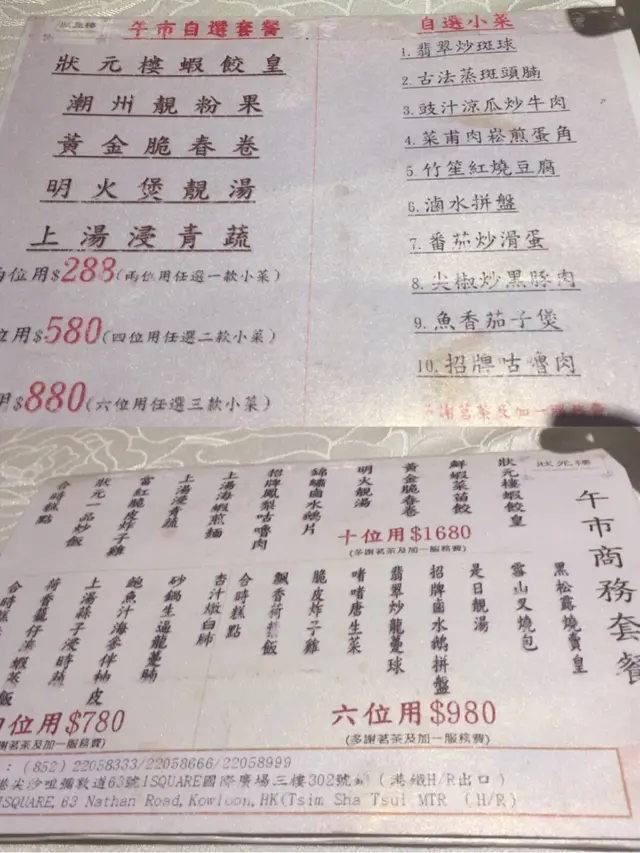 狀元樓
午市自選套餐
狀元樓蝦餃皇
潮州靚粉果
黃金脆春卷
明火煲靚湯
上湯浸青蔬
位用$288(兩位用任選一款小菜)
位用$580(四位用任選二款小菜)
用$880(六位用任選三款小菜)
自選小菜
1.翡翠炒斑球
2.古法蒸斑頭腩
3.豉汁涼瓜炒牛肉
4.菜甫肉崧煎蛋角
5.竹笙紅燒豆腐
6.滷水拼盤
7.番茄炒滑蛋
8.尖椒炒黑豚肉
9.魚香茄子煲
10.招牌咕嚕肉
多謝茗茶及加一服務費
狀元樓
午市商務套餐
狀元樓蝦餃皇
鮮蝦菜苗餃
黃金脆春卷
明火靚湯
錦繡鹵水鵝片
招牌鳳梨咕嚕肉
上湯海蝦煎麵
上湯浸青蔬
富紅脆皮炸子雞
狀元一品炒飯
合時糕點
十位用$1680
(多謝茗茶及加一服務費)
黑松露燒賣皇
雪山叉燒包
是日靚湯
招牌鹵水鵝拼盤
翡翠炒龍躉球
啫啫唐生菜
脆皮炸子雞
飄香荷葉飯
合時糕點
六位用$980
(多謝茗茶及加一服務費)
杏汁燉白肺
砂鍋生焗龍躉腩
鮑魚汁海參伴柚皮
上湯蒜子浸時蔬
荷香瓏仔蒸蝦茖飯
合時糕
位用$780
謝茗茶及加一服務費)
: (852) 22058333/22058666/22058999
港尖沙咀彌敦道63號ISQUARE國際廣場三樓302號鋪 (港鐵H/R出口)
ISQUARE, 63 Nathan Road, Kowloon, HK(Tsim Sha Tsui MTR (H/R)